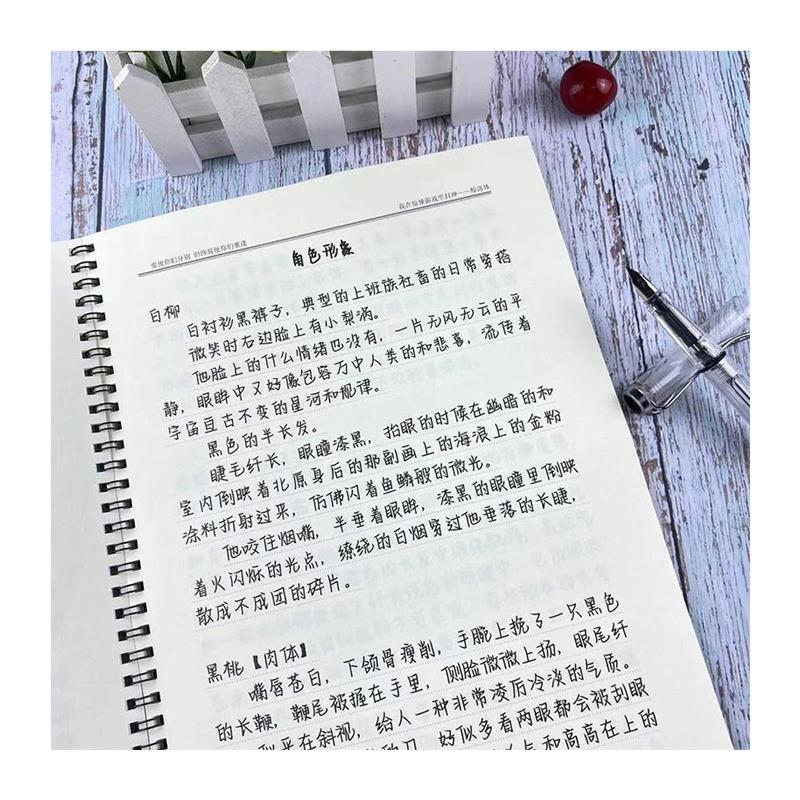 爱使你们分别 但终局使你们重逢
我在惊悚游戏里封神——
角色形象
白柳
白衬衫黑裤子，典型的上班族社畜的日常穿搭
微笑时右边脸上有小梨涡。
他脸上的什么情绪也没有，一片无风无云的平
静，眼眸中又好像包容万中人类的和悲喜，流传着
宇宙亘古不变的星河和规律。
黑色的半长发。
睫毛纤长，眼瞳漆黑，抬眼的时候在幽暗的和
室内倒映着北原身后的那副画上的海浪上的金粉
涂料折射过来，仿佛闪着鱼鳞般的微光。
他咬住烟嘴，半垂着眼眸，漆黑的眼瞳里倒映
着火闪烁的光点，缭绕的白烟穿过他垂落的长睫，
散成不成团的碎片。
黑桃【肉体】
嘴唇苍白，下颌骨瘦削，手腕上挽了一只黑色
的长鞭，鞭尾被握在手里，侧脸微微上扬，眼尾纤
乎在斜视，给人一种非常凌厉冷淡的气质。
的刀，好似多看两眼都会被刮眼
点和高高在上的